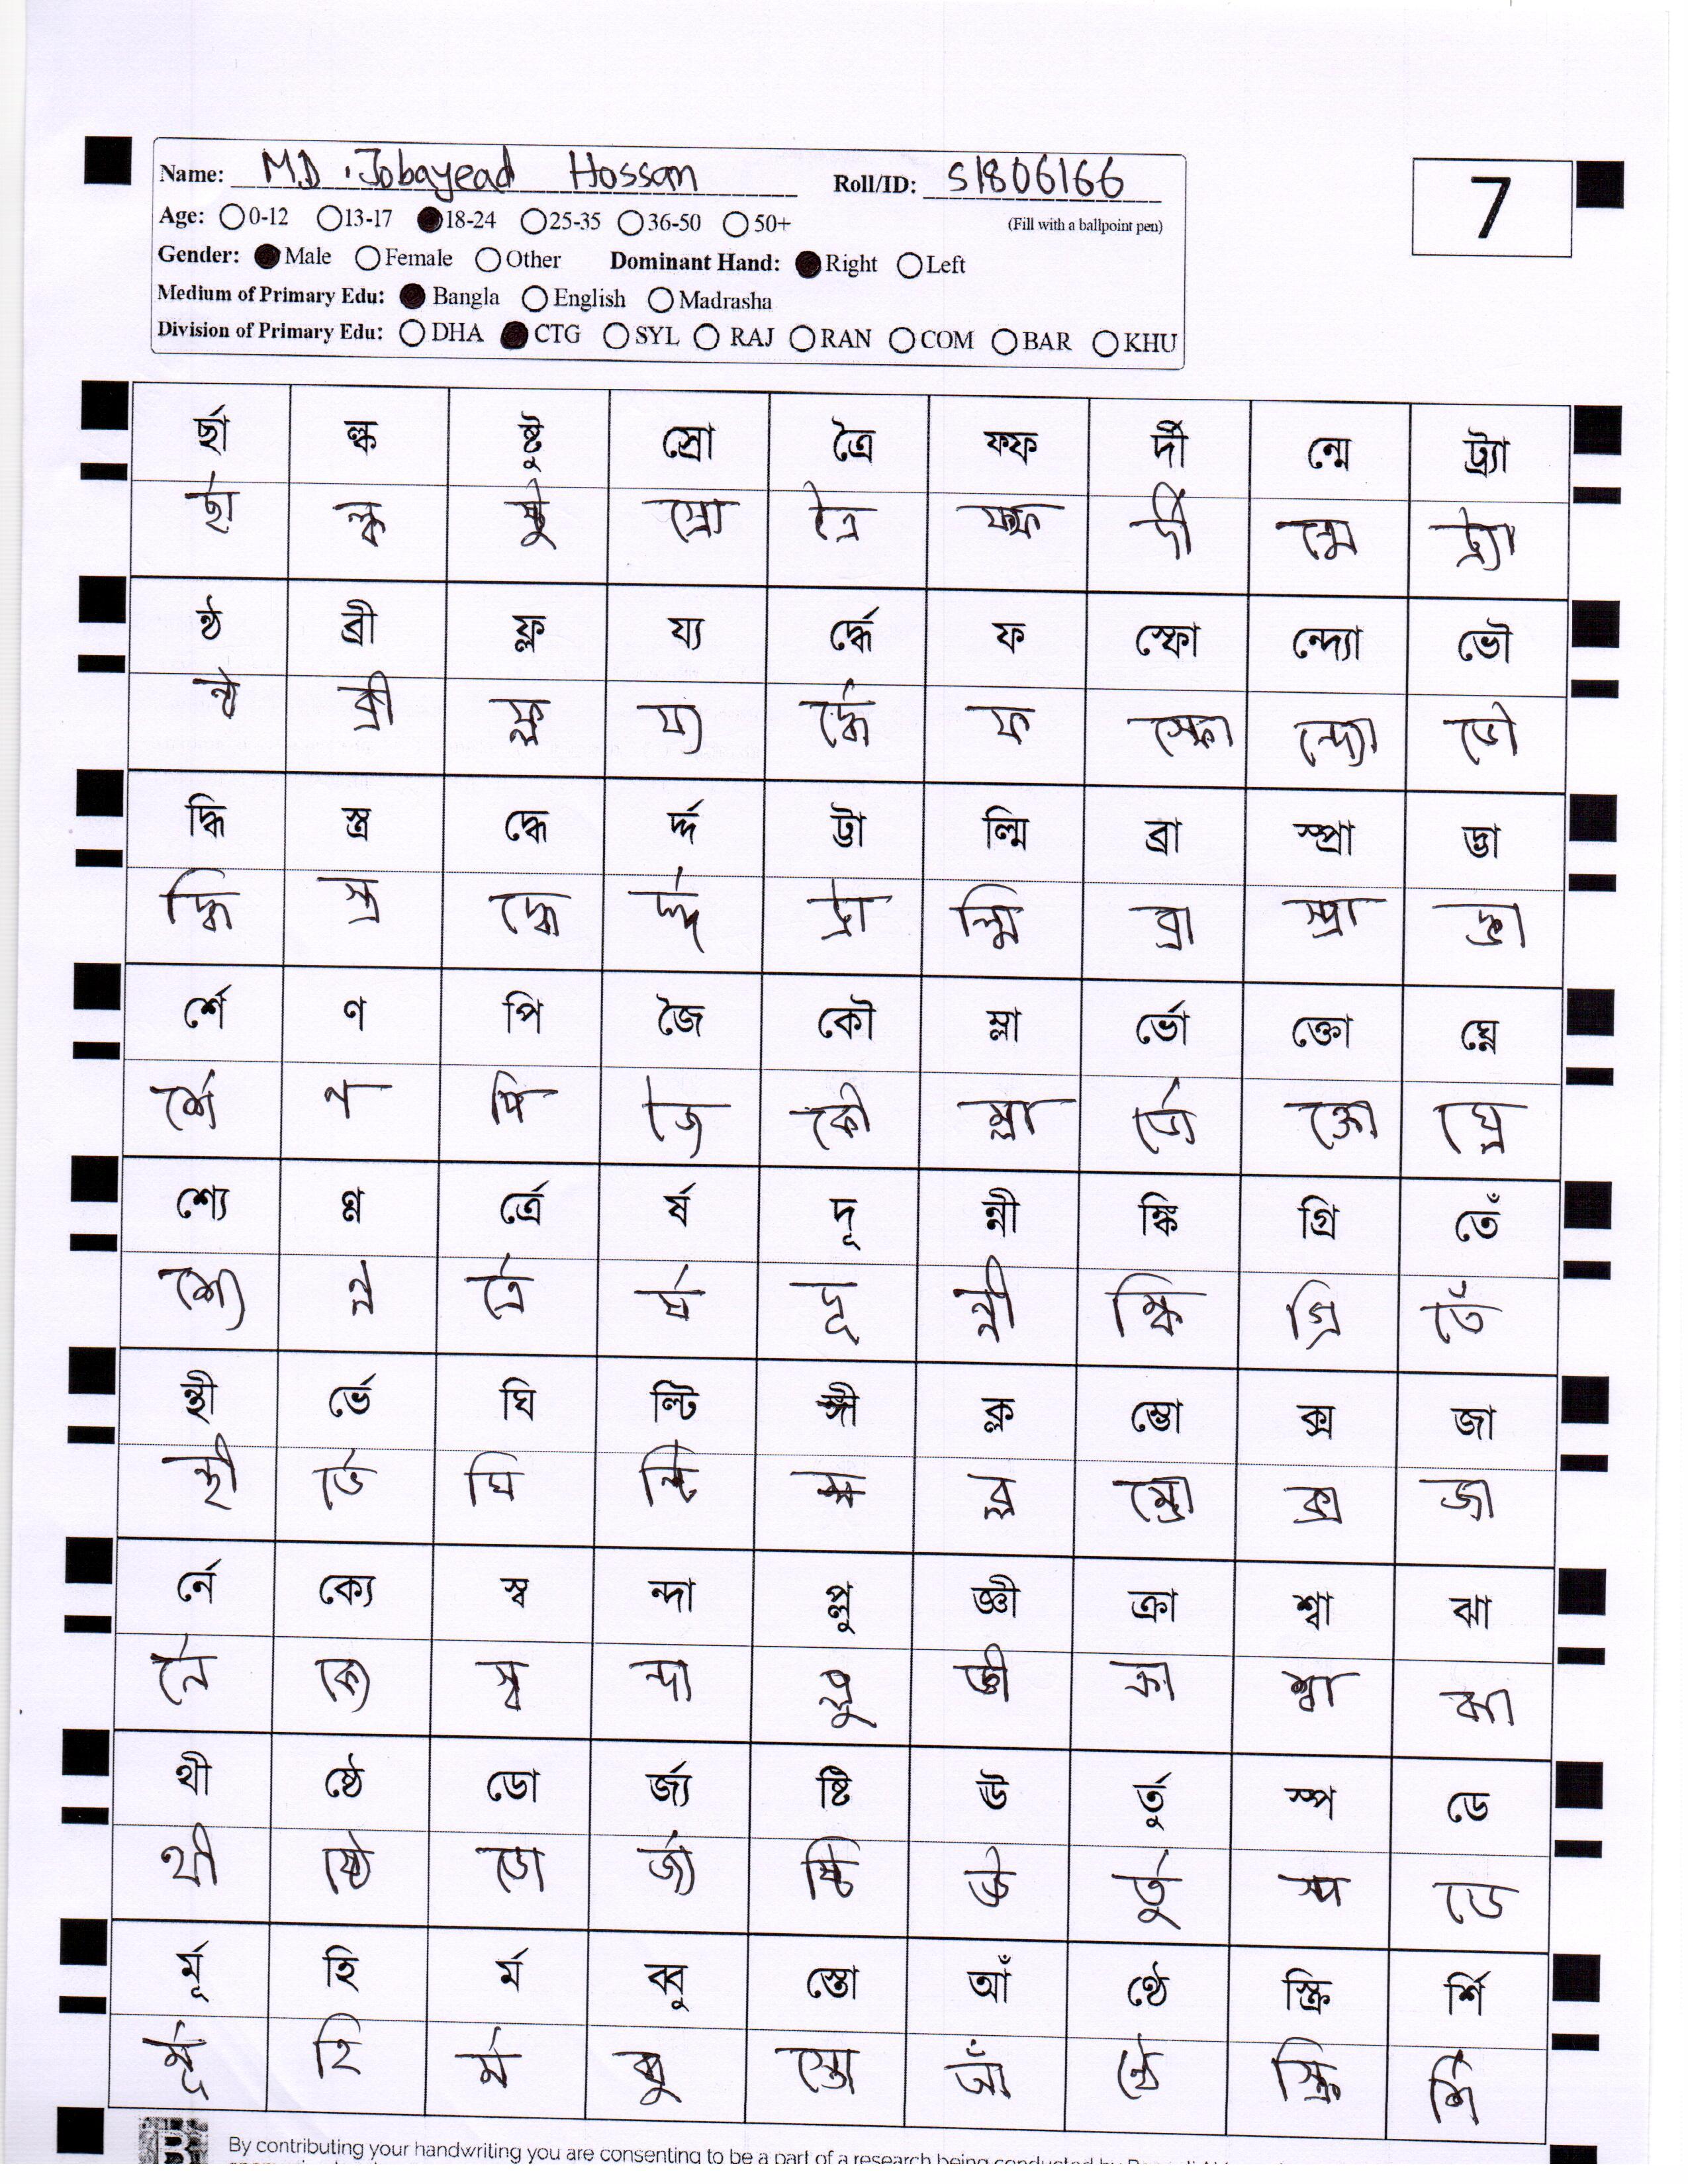 Name: M.D. Jobayead Hossan Roll/ID: S1806166
7
Age: 0-12 13-17 18-24 25-35 36-50 50+ (Fill with a ballpoint pen)
Gender: Male Female Other Dominant Hand: Right Left
Medium of Primary Edu: Bangla English Madrasha
Division of Primary Edu: DHA CTG SYL RAJ RAN COM BAR KHU
র্ছা ল্ক ষ্টু স্রো ত্রৈ ফফ র্দী ন্মে ট্র্যা
র্ছা ল্ক ষ্টু স্রো ত্রৈ ফফ র্দী ন্মে ট্র্যা
ন্ঠ ব্রী ফ্ল য্য র্দ্ধে ফ স্ফো ন্দ্যো ভৌ
ন্ঠ ব্রী ফ্ল য্য র্দ্ধে ফ স্ফো ন্দ্যো ভৌ
দ্ধি স্ত্র দ্ধে র্দ্দ ট্টা ল্মি ব্রা স্প্রা দ্ভা
দ্ধি স্ত্র দ্ধে র্দ্দ ট্টা ল্মি ব্রা স্প্রা দ্ভা
র্শে ণ পি জৈ কৌ ম্লা র্ভো ক্তো ঘ্নে
র্শে ণ পি জৈ কৌ ম্লা র্ভো ক্তো ঘ্নে
শ্যে প্ন র্ত্রে র্ষ দূ ন্নী ঙ্কি গ্রি তেঁ
শ্যে ন্ন র্ত্রে র্ষ দূ ন্নী ঙ্কি গ্রি তেঁ
হ্নী র্ভে ঘি ল্টি ঙ্গী ক্ল ম্ভো ক্স জা
র্ভে ঘি ল্টি ক্ল ম্ভো ক্স জা
র্নে ক্যে স্ব ন্দা প্লু জ্ঞী ক্রা শ্বা ঝা
র্নে ক্যে স্ব ন্দা প্লু জ্ঞী ক্রা শ্বা ঝা
থী ষ্ঠে ডো র্জ্য ষ্টি ঊ র্তু স্প ডে
থী ষ্ঠে ডো র্জ্য ষ্টি ঊ র্তু স্প ডে
র্মূ হি র্ম ব্বু স্তো আঁ ণ্ঠে স্ক্রি র্শি
র্মূ হি র্ম ব্বু স্তো আঁ ণ্ঠে স্ক্রি র্শি
By contributing your handwriting you are consenting to be a part of a research being conducted by